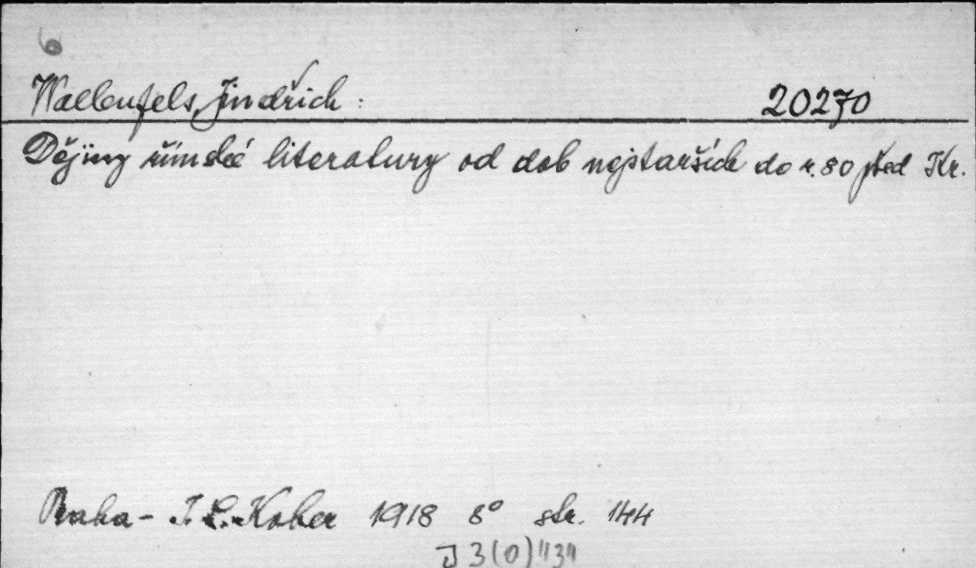 6
Wallenfels, Jindřich: 20270
Dějiny římské literatury od dob nejstarších do r. 80 před Kr.
Praha - I. L. Kober 1918 8° str. 144
J 3(0)"13"